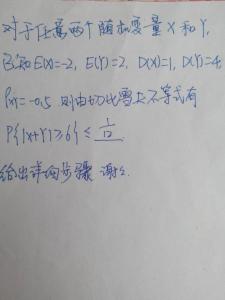 对于任意两个随机变量X和Y,
已知E(X)=-2, E(Y)=2, D(X)=1, D(Y)=4,
ρxy=-0.5 则由切比雪夫不等式有
P{|X+Y|≥6}≤ 1/12
给出详细步骤 谢谢.